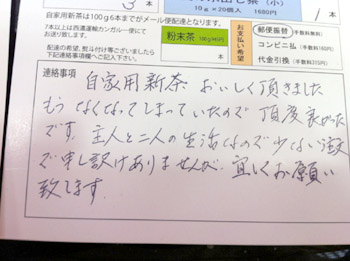 3 本
水出し茶（小）
10g×20個入 1680円
自家用新茶は100g6本まででメール便配達となります。
7本以上は西濃運輸カンガルー便にて
お送り致します。
粉末茶 100g 945円
本
お支払い希望
郵便振替（手数料無料）
コンビニ払（手数料160円）
代金引換（手数料315円）
配達の希望、熨斗付け等ございましたら
下記連絡事項欄へご記入下さい。
連絡事項
自家用新茶 おいしく頂きました
もうなくなってしまっていたので 頂度良かった
です。主人と二人の生活なので少ない注文
で申し訳けありませんが、宜しくお願い
致します。